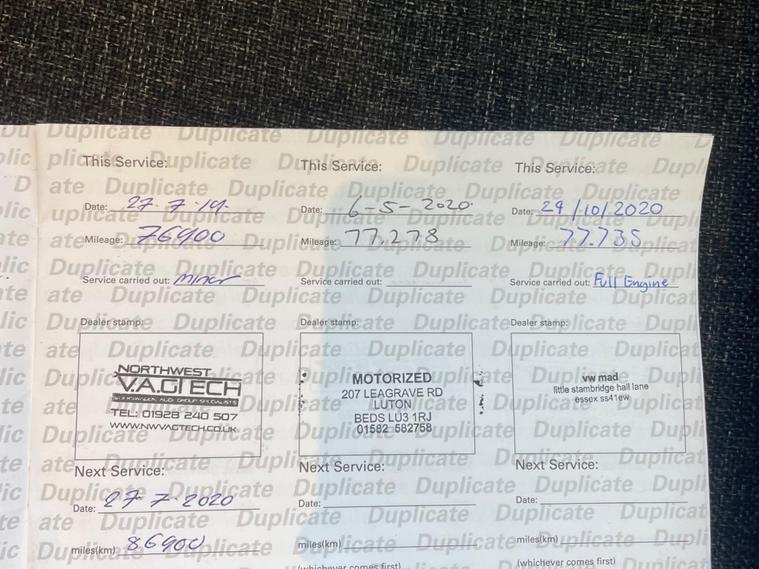 This Service:
Date: 27.7.19.
Mileage: 76900
Service carried out: Minor
Dealer stamp:
NORTHWEST
V.A.GTECH
VOLKSWAGEN AUDI GROUP SPECIALISTS
TEL: 01928 240 507
WWW.NWVAGTECH.CO.UK
Next Service:
Date: 27 7 2020
miles(km) 86900
This Service:
Date: 6-5-2020.
Mileage: 77.278
Service carried out:
Dealer stamp:
MOTORIZED
207 LEAGRAVE RD
LUTON
BEDS LU3 1RJ
01582 582758
Next Service:
Date:
miles(km)
(whichever comes first)
This Service:
Date: 29/10/2020
Mileage: 77.735
Service carried out: Full Engine
Dealer stamp:
vw mad
little stambridge hall lane
essex ss41ew
Next Service:
Date:
miles(km)
(whichever comes first)
Duplicate Duplicate Duplicate Duplicate